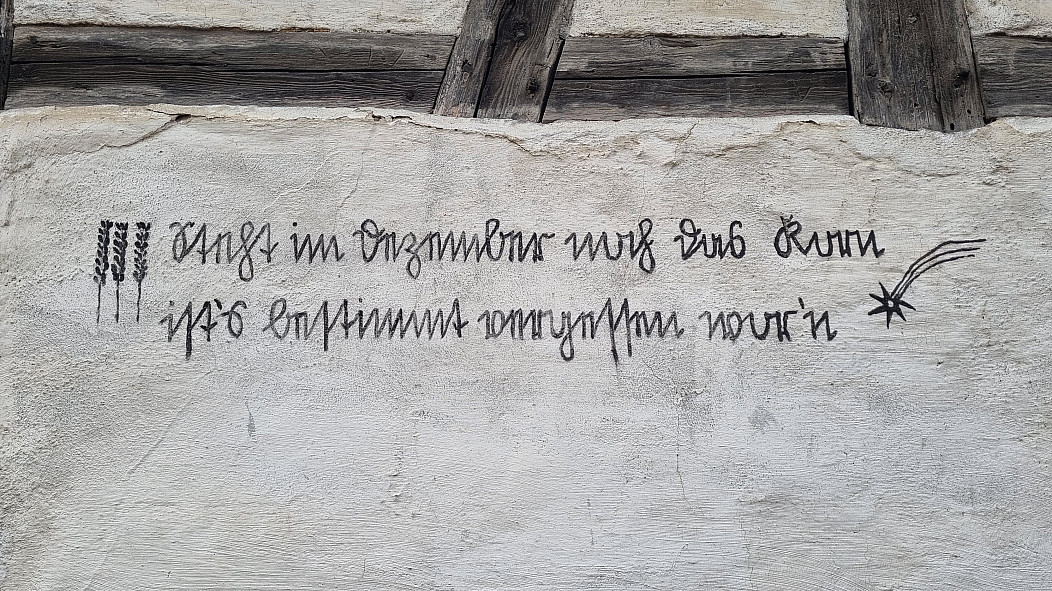 Steht im Dezember noch das Korn
ist's bestimmt vergessen wor'n